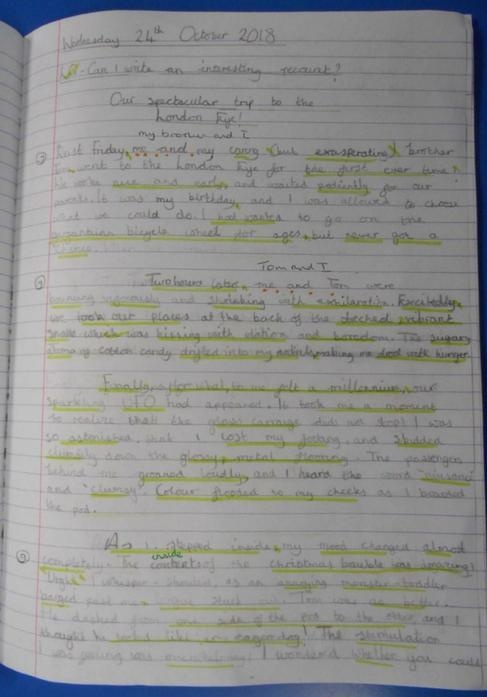 Wednesday 24th October 2018
- Can I write an interesting recount?
Our spectacular trip to the
London Eye!
my brother and I
Last Friday, me and my caring (but exasperating) brother
Tom, went to the London Eye for the first ever time.
We woke and early, and waited patiently for our
It was my birthday, and I was allowed to choose
what we could do. I had wanted to go on the
bicycle wheel for ages, but never got a
Tom and I
Two hours later, me and Tom were
vigorously and shrieking with exhilaration. Excitedly,
we took our places at the back of the vibrant
snake which was hissing with elation and boredom. The sugary
aroma of cotton candy drifted into my nostrils, making me drool with hunger.
Finally, after what, to me felt a millennium, our
sparkling UFO had appeared. It took me a moment
to realise that the glass carriage did not stop! I was
so astonished, that I lost my footing, and
clumsily down the glossy, metal flooring. The passengers
behind me groaned loudly, and I heard the word
and "clumsy". Colour flooded to my cheeks as I boarded
the pod.
As I stepped inside, my mood changed almost
inside
completely. The contents of the christmas bauble was amazing!
I whisper-shouted, as an monster toddler
barged past me, tongue stuck out. Tom was no better.
He dashed from one side of the pod to the other, and I
thought he looked like an dog! The
I was was I wondered whether you could